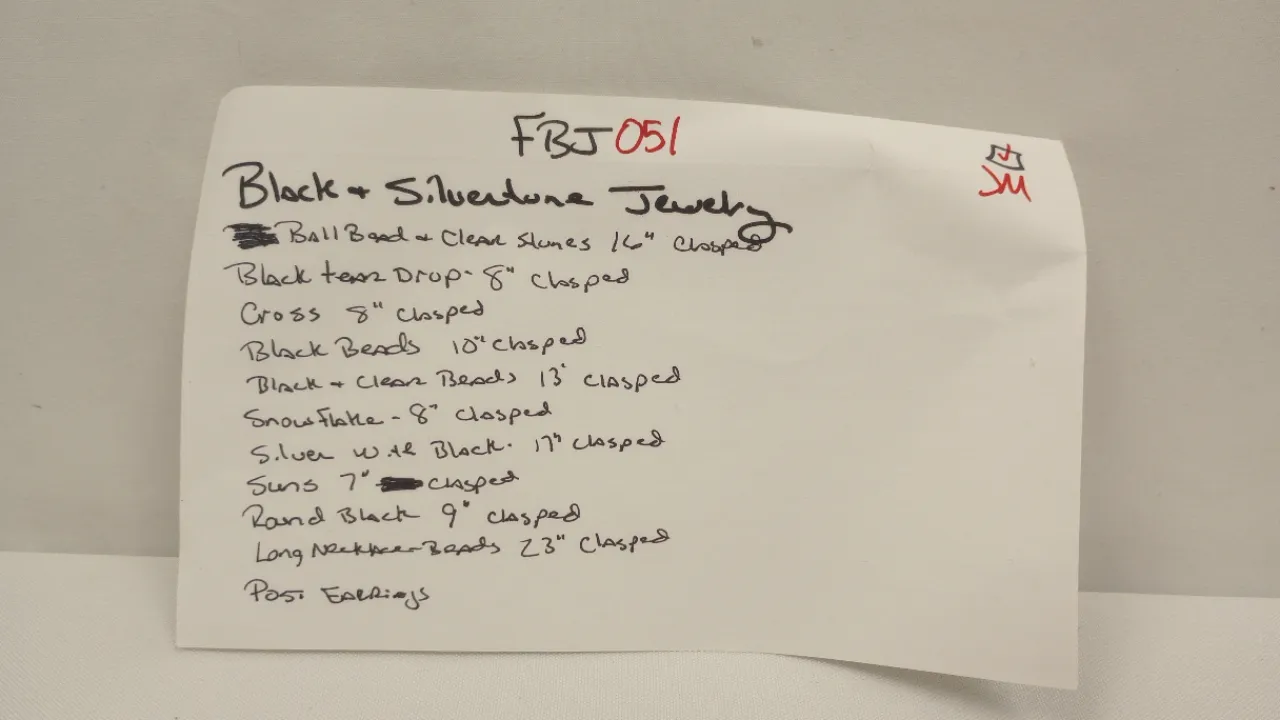 FBJ 051
JM
Black + Silvertone Jewelry
Ball Bead + Clear Stones 16" Clasped
Black tear Drop - 8" Clasped
Cross 8" Clasped
Black Beads 10" Clasped
Black + Clear Beads 13" Clasped
Snowflake - 8" Clasped
Silver with Black - 17" Clasped
Suns 7" Clasped
Round Black 9" Clasped
Long Necklace - Beads 23" Clasped
Post Earrings